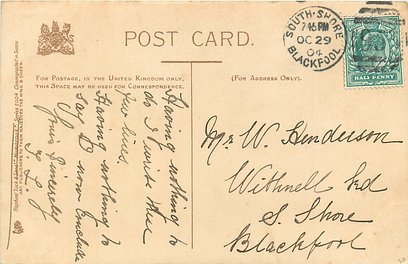 POST CARD.
FOR POSTAGE, IN THE UNITED KINGDOM ONLY,
THIS SPACE MAY BE USED FOR CORRESPONDENCE.
(FOR ADDRESS ONLY).
SOUTH-SHORE
7.45PM
OC 29
04
BLACKPOOL
HALF PENNY
Having nothing to
do I write these
few lines.
Having nothing to
say I now conclude
Yours Sincerely
Mr W. Henderson
Withnell Rd
S. Shore
Blackpool
Raphael Tuck & Sons'
ART PUBLISHERS TO THEIR MAJESTIES THE KING & QUEEN.